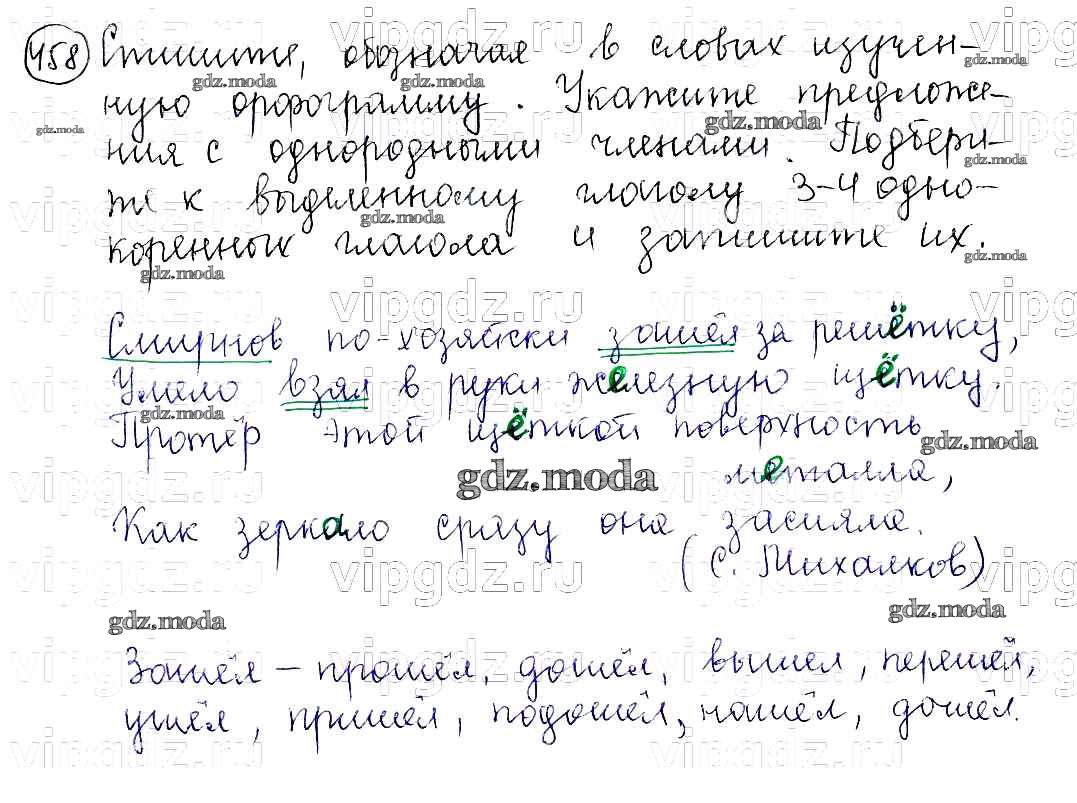 458 Спишите, обозначая в словах изучен-
ную орфограмму. Укажите предложе-
ния с однородными членами. Подбери-
те к выделенному глаголу 3-4 одно-
коренных глагола и запишите их.
Смирнов по-хозяйски зашёл за решётку,
Умело взял в руки железную щётку.
Протёр этой щёткой поверхность
металла,
Как зеркало сразу она засияла.
(С. Михалков)
Зашёл – прошёл, дошёл, вышел, перешёл,
ушёл, пришёл, подошёл, нашёл, дошёл.